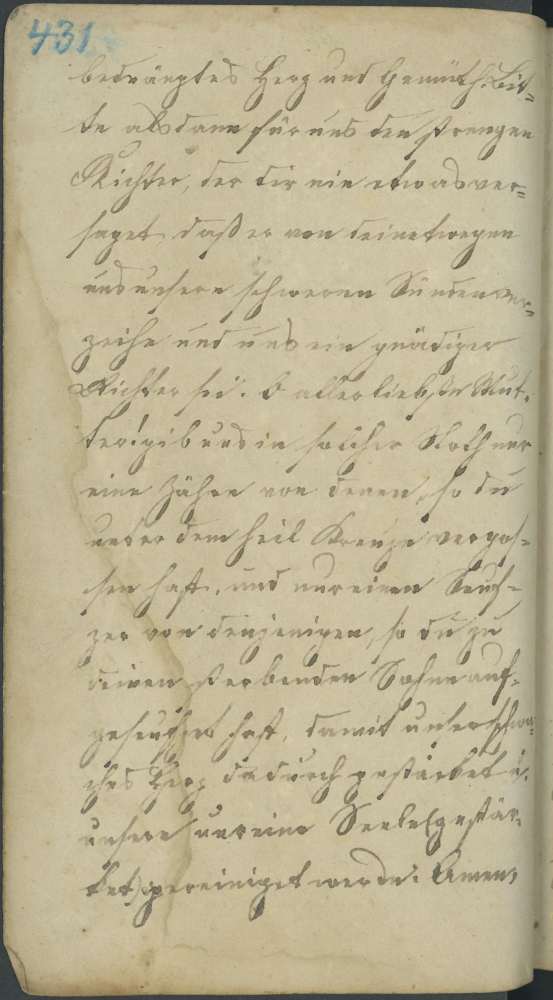 431
bedrängtes Herz und Gemüth. Bit-
te alsdann für uns den strengen
Richter, der dir nie etwas ver-
saget, daß er von deinetwegen
uns unsere schweren Sünden ver-
zeihe und uns ein gnädiger
Richter sei. O allerliebste Mut-
ter! gib uns in solcher Noth nur
eine Zähre von denen, so du
unter dem heil Kreuze vergos-
sen hast, und nur einen Seuf-
zer von denjenigen, so du zu
deinen sterbenden Sohne auf-
geseufzet hast, damit unser schwa-
ches Herz dadurch gestärket u.
unsere unreine Seele (gestär-
ket) gereiniget werde. Amen.